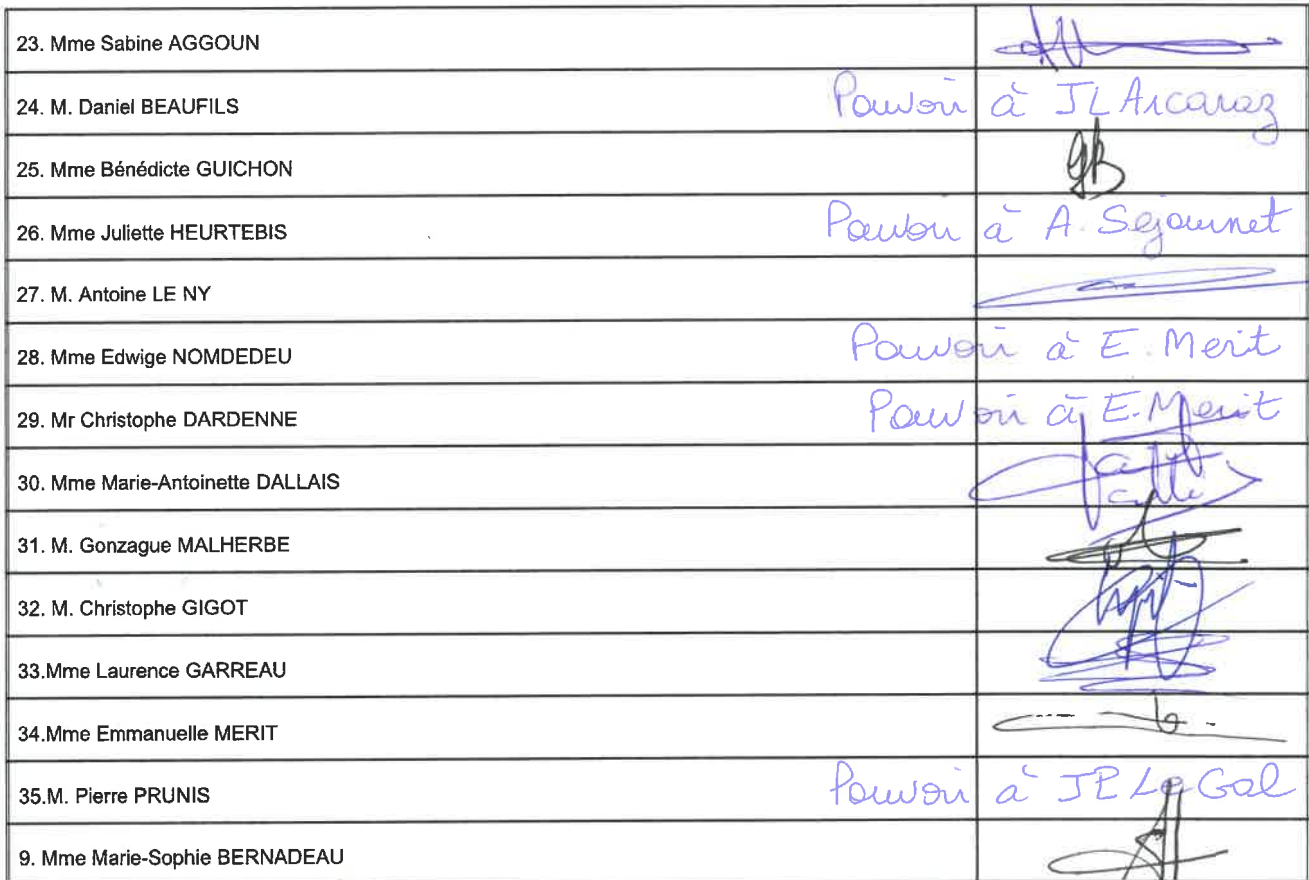 23. Mme Sabine AGGOUN
24. M. Daniel BEAUFILS Pouvoir à JL Arcaraz
25. Mme Bénédicte GUICHON GB
26. Mme Juliette HEURTEBIS Pouvoir à A. Sejournet
27. M. Antoine LE NY
28. Mme Edwige NOMDEDEU Pouvoir à E. Merit
29. Mr Christophe DARDENNE Pouvoir à E. Merit
30. Mme Marie-Antoinette DALLAIS
31. M. Gonzague MALHERBE
32. M. Christophe GIGOT
33.Mme Laurence GARREAU
34.Mme Emmanuelle MERIT
35.M. Pierre PRUNIS Pouvoir à JP Le Gal
9. Mme Marie-Sophie BERNADEAU